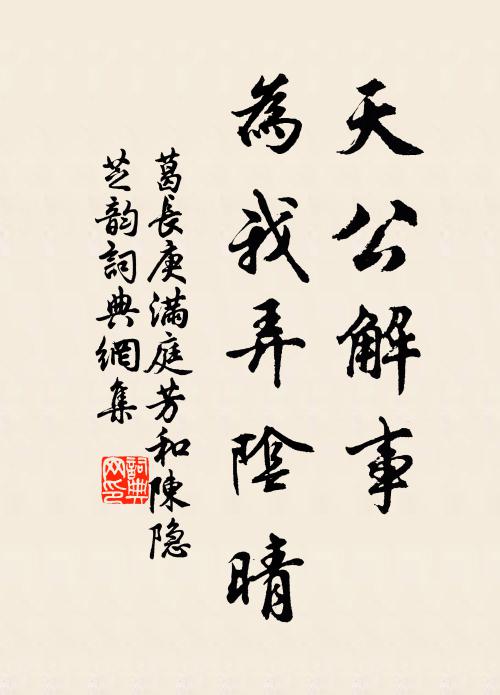 天公解事
為我弄陰晴
葛長庚滿庭芳和陳隐
芝韵詞典網集
詞典网印